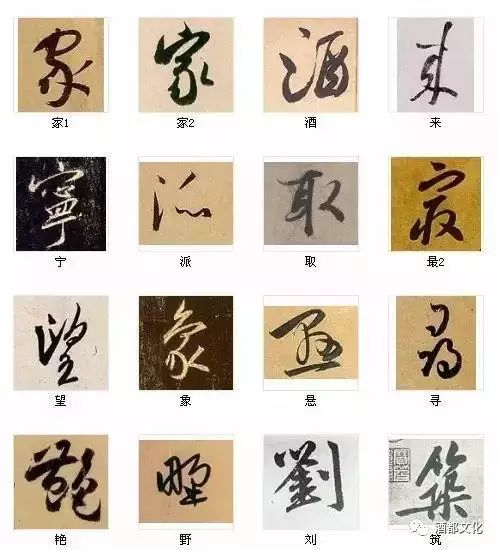 家 家 酒 来
家1 家2 酒 来
寧 派 取 最
宁 派 取 最2
望 象 悬 尋
望 象 悬 寻
艷 野 劉 築
艳 野 刘 筑
酒都文化